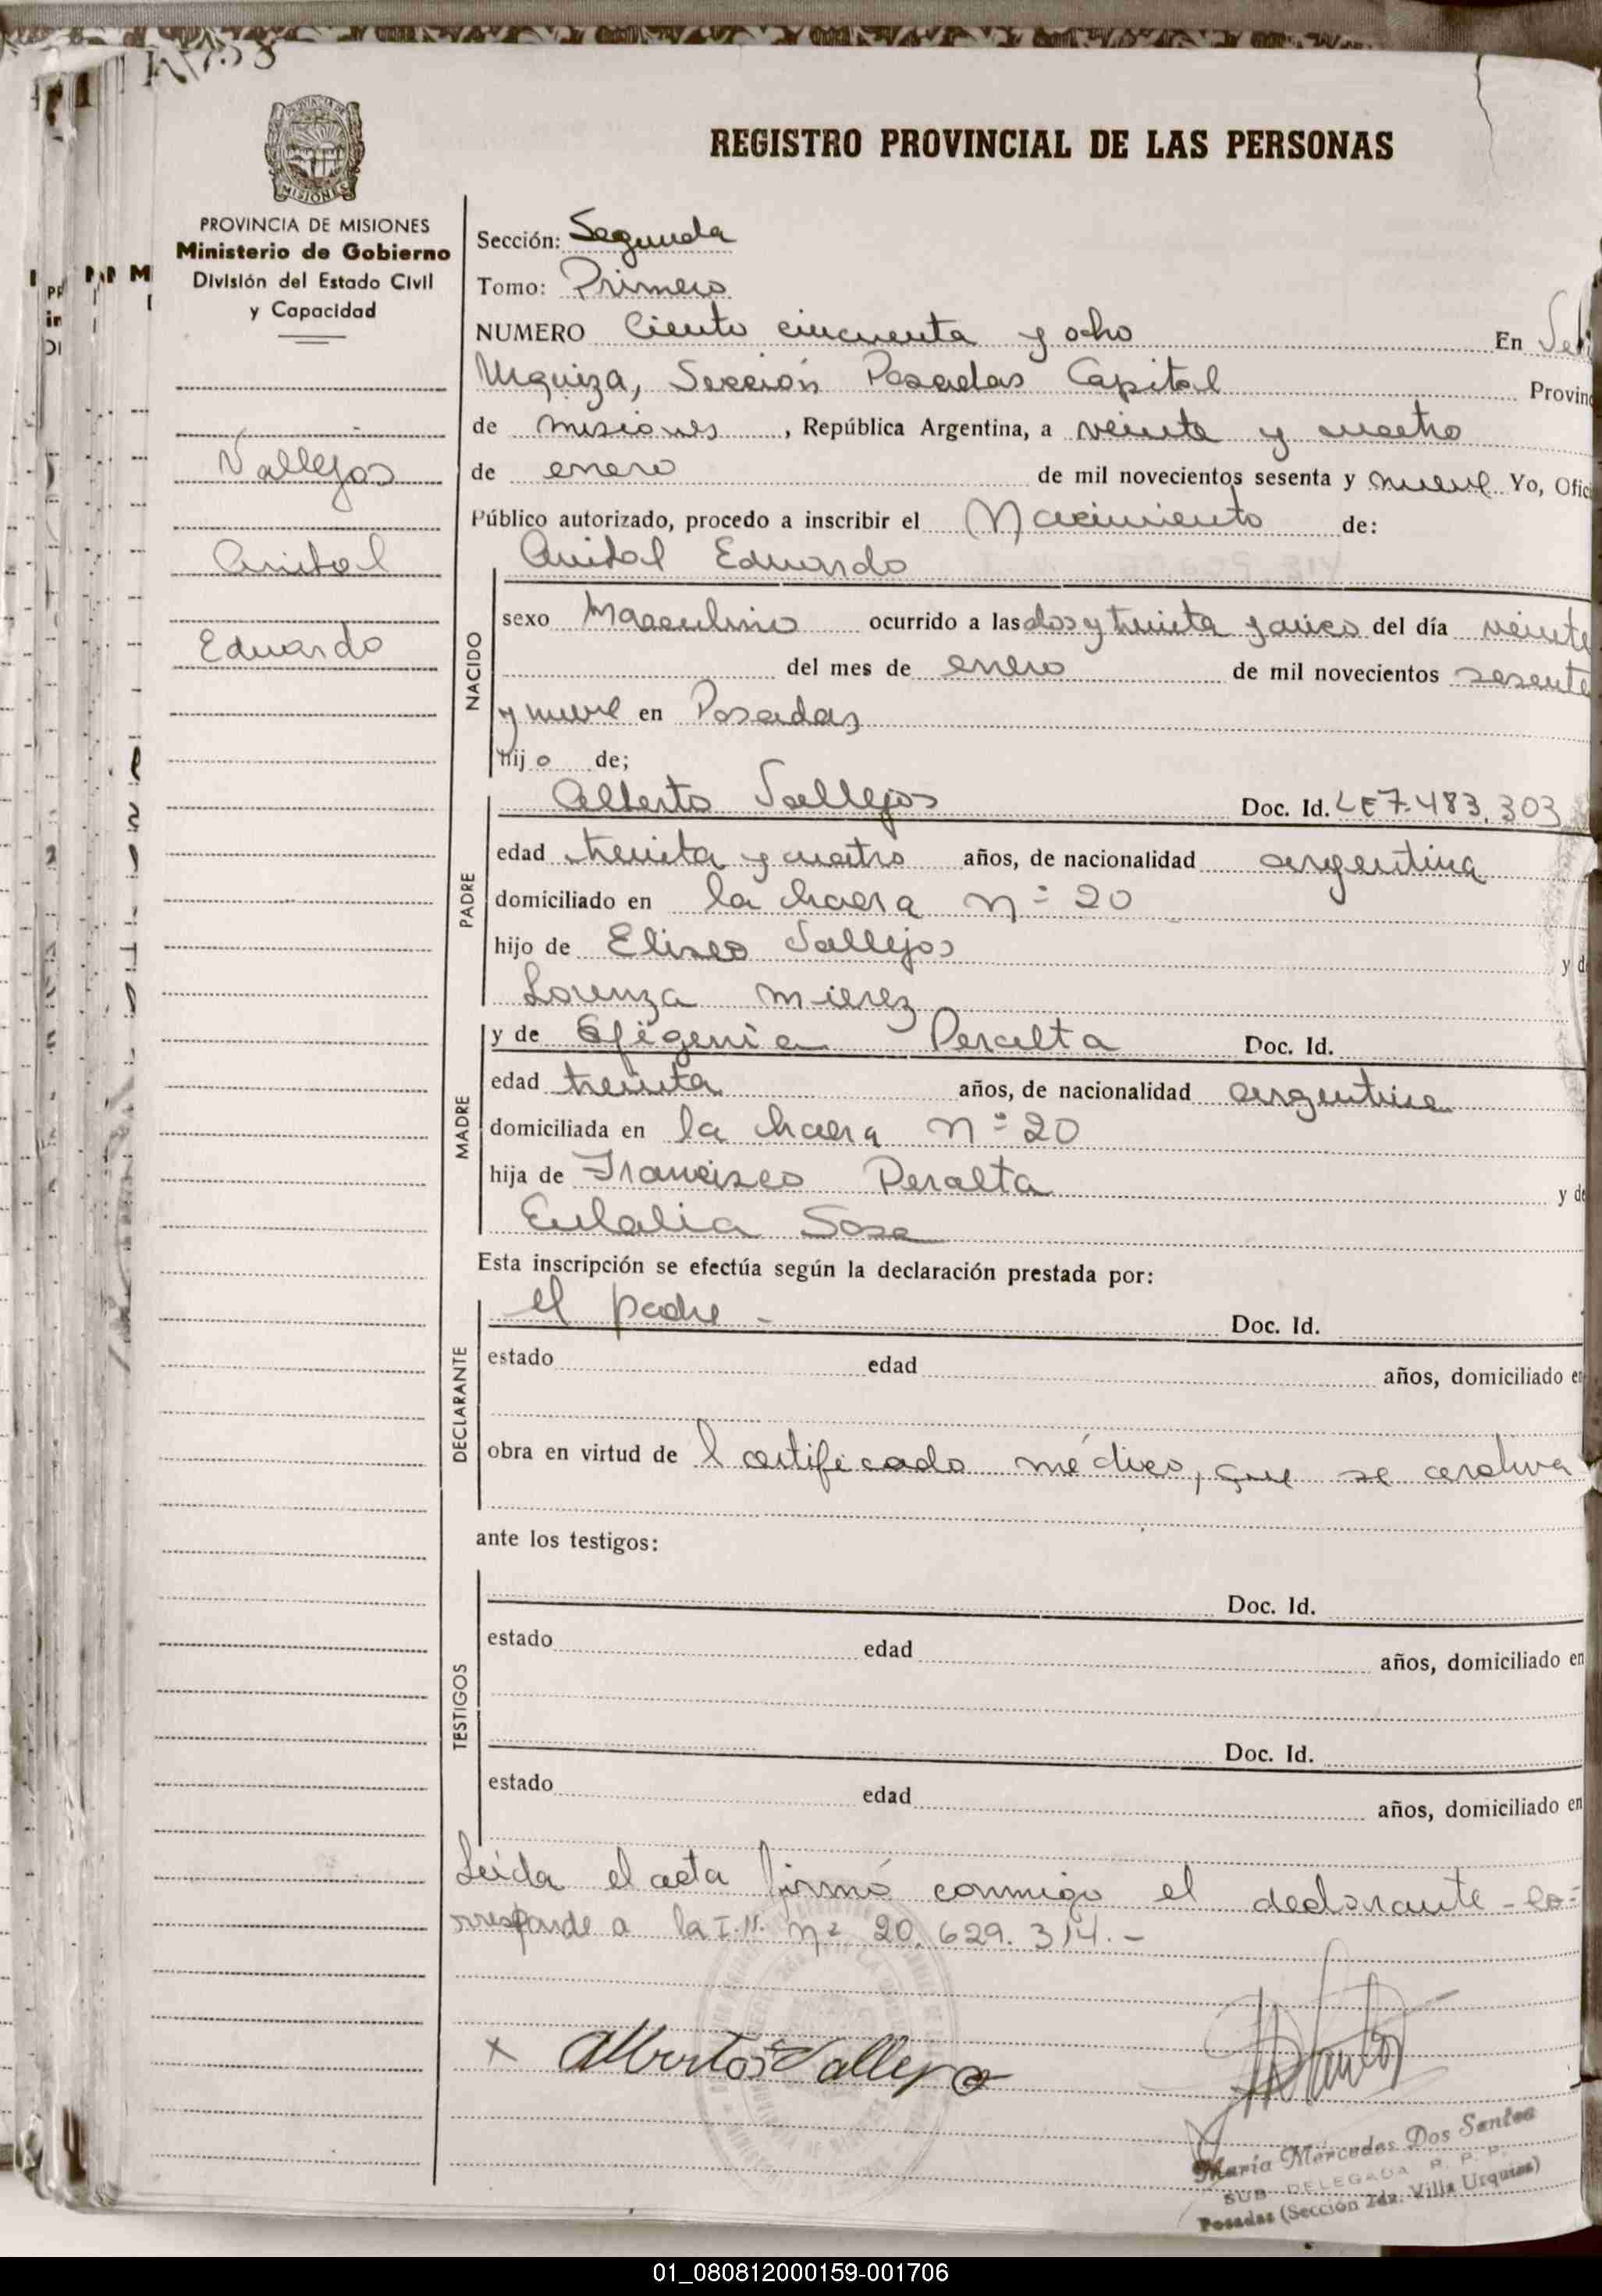 Nº 158
REGISTRO PROVINCIAL DE LAS PERSONAS
PROVINCIA DE MISIONES
Ministerio de Gobierno
División del Estado Civil
y Capacidad
Vallejos
Anibal
Eduardo
Sección: Segunda
Tomo: Primero
NUMERO Ciento cincuenta y ocho En
Urquiza, Sección Posadas Capital Provinc
de misiones, República Argentina, a veinte y cuatro
de enero de mil novecientos sesenta y nueve Yo, Ofici
Público autorizado, procedo a inscribir el Nacimiento de:
Anibal Eduardo
NACIDO
sexo Masculino ocurrido a las dos y treinta y cinco del día veinte
del mes de enero de mil novecientos sesenta
y nueve en Posadas
hijo de;
PADRE
Alberto Vallejos Doc. Id. LE 7.483.303
edad treinta y cuatro años, de nacionalidad argentina
domiciliado en la chacra nº 20
hijo de Eliseo Vallejos y de
Lorenza mierez
MADRE
y de Efigenia Peralta Doc. Id.
edad treinta años, de nacionalidad argentina
domiciliada en la chacra nº 20
hija de Francisco Peralta y de
Eulalia Sosa
Esta inscripción se efectúa según la declaración prestada por:
DECLARANTE
el padre - Doc. Id.
estado edad años, domiciliado en
obra en virtud de l certificado médico, que se archiva
ante los testigos:
TESTIGOS
Doc. Id.
estado edad años, domiciliado en
Doc. Id.
estado edad años, domiciliado en
Leída el acta firmó conmigo el declarante - co=
rresponde a la I.N. nº 20.629.314.-
x Alberto Vallejo
María Mercedes Dos Santos
SUB DELEGADA R. P. P.
Posadas (Sección 2da. Villa Urquiza)
01_080812000159-001706